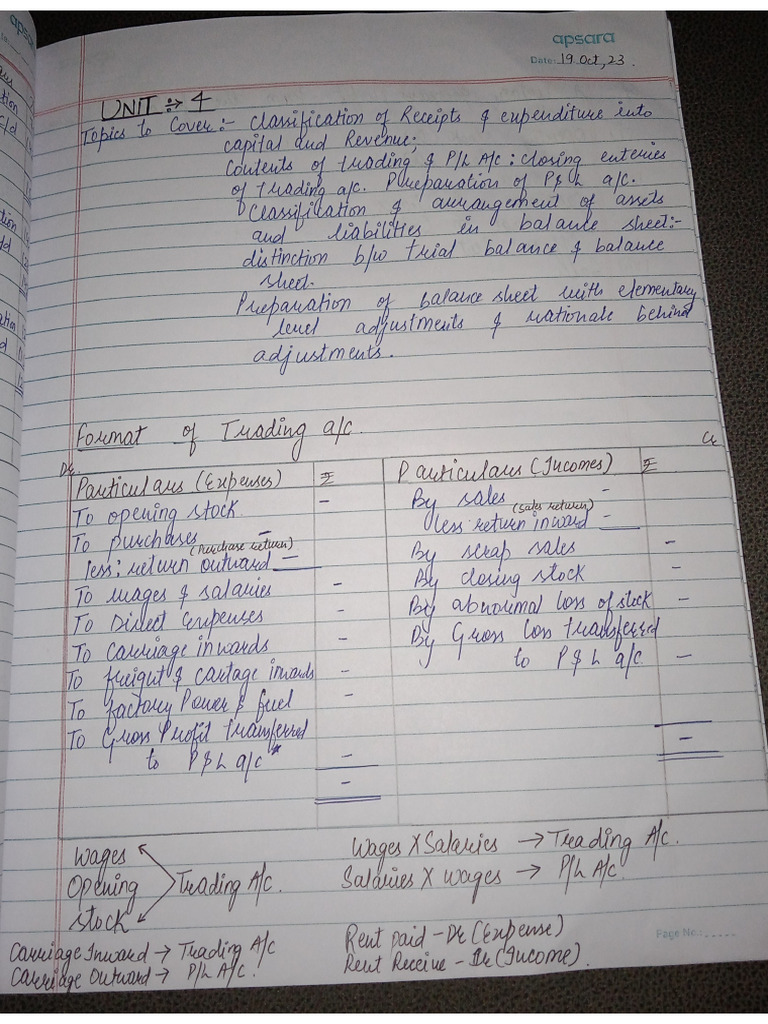 apsara
Date: 19 Oct, 23.
UNIT ÷ 4
Topics to Cover:- Classification of Receipts & expenditure into
capital and Revenue;
Contents of trading & P/L A/c: closing enteries
of trading a/c. Preparation of P & L a/c.
Classification & arrangement of assets
and liabilities in balance sheet:-
distinction b/w trial balance & balance
sheet.
Preparation of balance sheet with elementary
level adjustments & rationale behind
adjustments.
Format of Trading a/c.
Dr. Cr
Particulars (Expenses) ₹ Particulars (Incomes) ₹
To opening stock -
To purchases -
(Purchase return)
less: return outward -
To wages & salaries -
To Direct Expenses -
To Carriage inwards -
To freight & cartage inwards -
To factory Power & fuel -
To Gross Profit transferred
to P & L a/c -
-
By sales -
(Sales return)
less return inward -
By scrap sales -
By closing stock -
By abnormal loss of stock -
By Gross loss transferred
to P & L a/c. -
-
Wages
Opening Trading A/c.
stock
Carriage Inward → Trading A/c
Carriage Outward → P/L A/c.
Wages X Salaries → Trading A/c.
Salaries X wages → P/L A/c.
Rent paid - Dr (Expense)
Rent Receive - (Income).
Page No.: .....